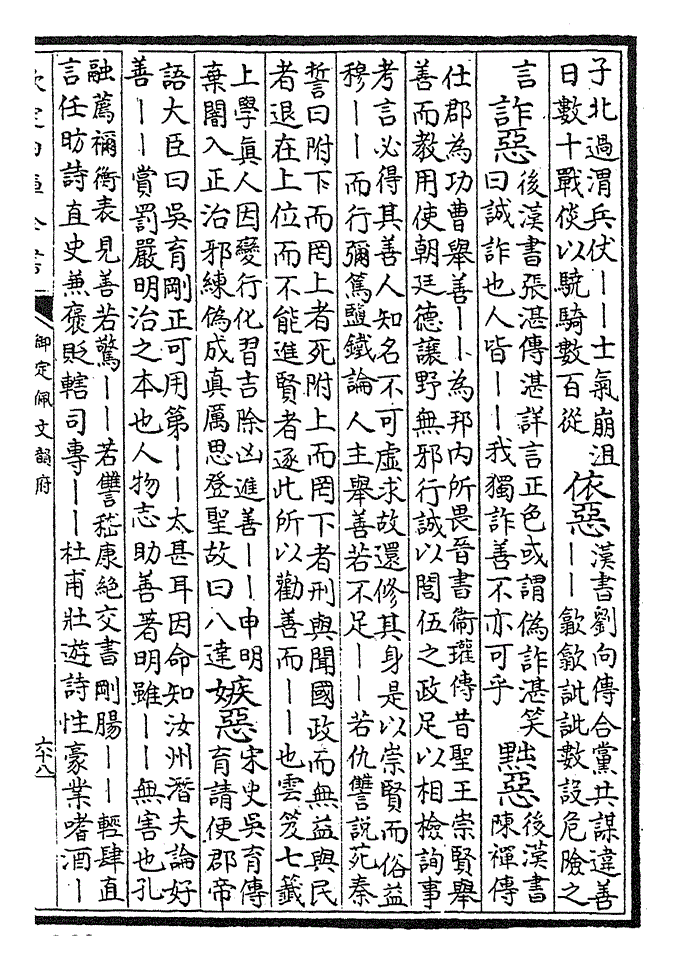 子北過渭兵伏——士氣崩沮
日數十戰倓以驍騎數百從
依惡
漢書劉向傳合黨共謀違善
——歙歙訿訿數設危險之
言
詐惡
後漢書張湛傳湛詳言正色或謂偽詐湛笑
曰誠詐也人皆——我獨詐善不亦可乎
黜惡
後漢書
陳禪傳
仕郡為功曹舉善——為邦内所畏晉書衞瓘傳昔聖王崇賢舉
善而教用使朝廷德讓野無邪行誠以閭伍之政足以相檢詢事
考言必得其善人知名不可虛求故還修其身是以崇賢而俗益
穆——而行彌篤鹽鐵論人主舉善若不足——若仇讐說苑秦
誓曰附下而罔上者死附上而罔下者刑與聞國政而無益與民
者退在上位而不能進賢者逐此所以勸善而——也雲笈七籤
上學真人因變行化習吉除凶進善——申明
棄闇入正治邪練偽成真厲思登聖故曰八達
嫉惡
宋史吳育傳
育請便郡帝
語大臣曰吳育剛正可用第——太甚耳因命知汝州潛夫論好
善——賞罰嚴明治之本也人物志助善著明雖——無害也孔
融薦禰衡表見善若驚——若讐嵇康絶交書剛腸——輕肆直
言任昉詩直史兼褒貶轄司專——杜甫壯遊詩性豪業嗜酒—
御定佩文韻府
六十八